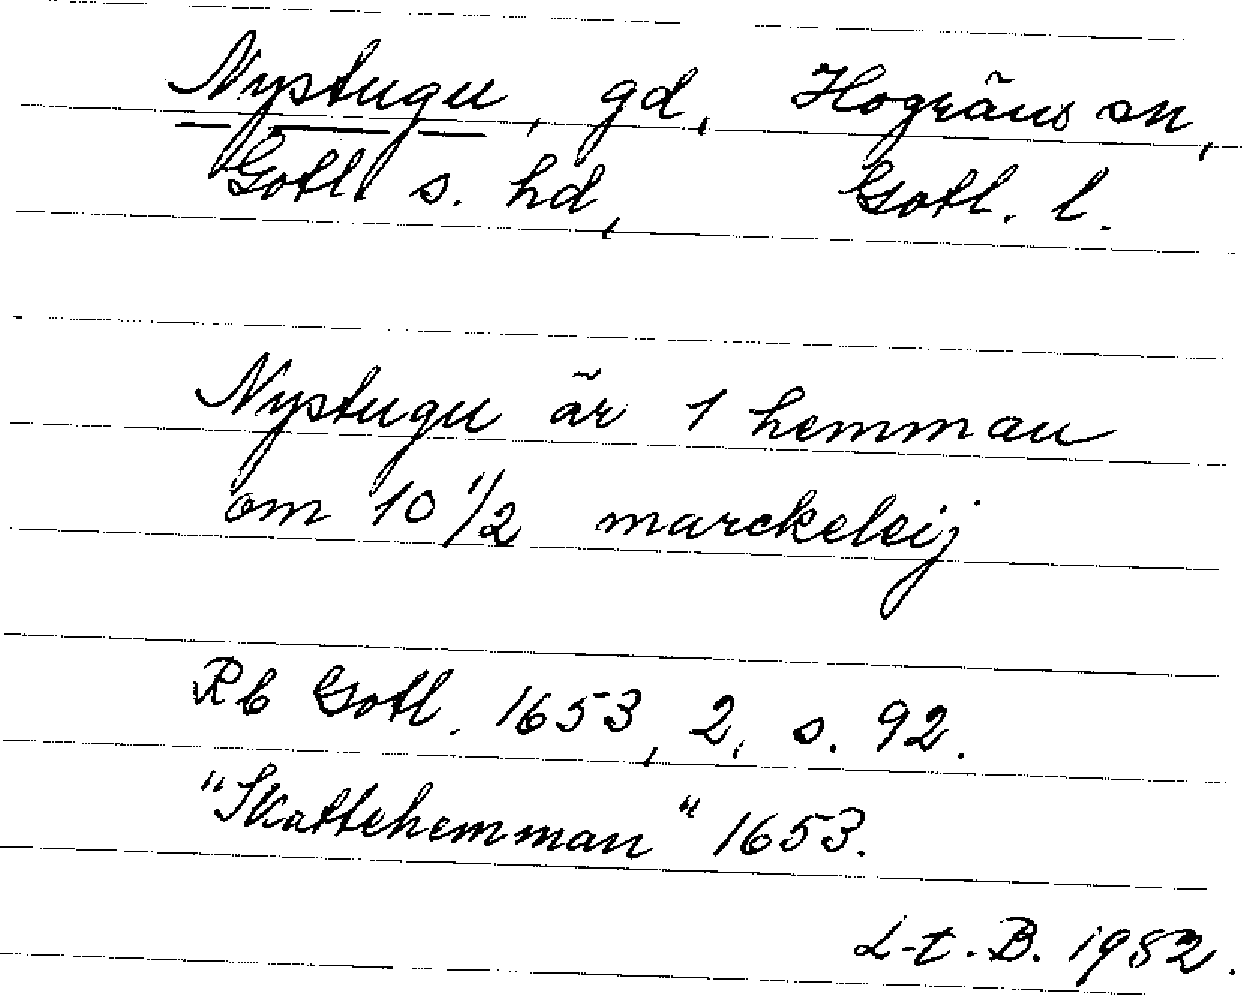 Nystugu, gd, Hogräns sn,
Gotl s. hd, Gotl. l.
Nystugu är 1 hemman
om 10 1/2 marckeleij
Rb Gotl. 1653, 2, s. 92.
"Skattehemman" 1653.
L-t. B. 1952.